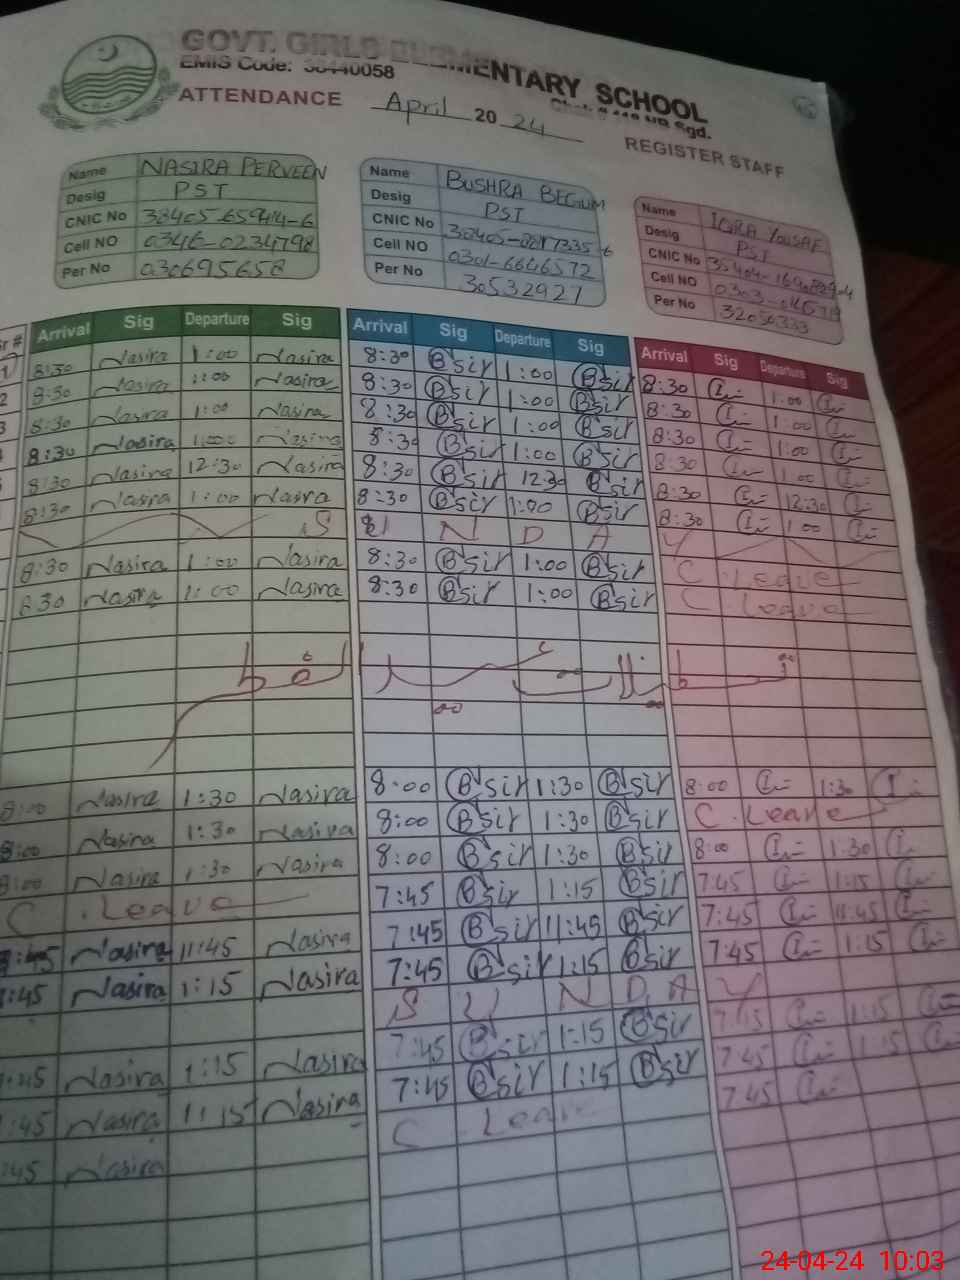 GOVT. GIRLS ELEMENTARY SCHOOL
EMIS Code: 38440058
Chak # 119 NB Sgd.
ATTENDANCE April 20 24
REGISTER STAFF
Name NASIRA PERVEEN
Desig PST
CNIC No
Cell NO 0346-0234798
Per No 030695658
Name BUSHRA BEGUM
Desig PST
CNIC No
Cell NO 0301-6646572
Per No 30532927
Name IQRA YOUSAF
Desig PST
CNIC No
Cell NO
Per No 32056333
Sr # Arrival Sig Departure Sig Arrival Sig Departure Sig Arrival Sig Departure Sig
1 8:30 Nasira 1:00 Nasira 8:30 Bsir 1:00 Bsir 8:30 1:00
2 8:30 Nasira 1:00 Nasira 8:30 Bsir 1:00 Bsir 8:30 1:00
3 8:30 Nasira 1:00 Nasira 8:30 Bsir 1:00 Bsir 8:30 1:00
8:30 Nasira 1:00 Nasira 8:30 Bsir 1:00 Bsir 8:30 1:00
8:30 Nasira 12:30 Nasira 8:30 Bsir 12:30 Bsir 8:30 12:30
8:30 Nasira 1:00 Nasira 8:30 Bsir 1:00 Bsir 8:30 1:00
S U N D A Y
8:30 Nasira 1:00 Nasira 8:30 Bsir 1:00 Bsir C. Leave
8:30 Nasira 1:00 Nasira 8:30 Bsir 1:00 Bsir C. Leave
8:00 Nasira 1:30 Nasira 8:00 Bsir 1:30 Bsir 8:00 1:30
8:00 Nasira 1:30 Nasira 8:00 Bsir 1:30 Bsir C. Leave
8:00 Nasira 1:30 Nasira 8:00 Bsir 1:30 Bsir 8:00 1:30
C. Leave 7:45 Bsir 1:15 Bsir 7:45 1:15
7:45 Nasira 11:45 Nasira 7:45 Bsir 11:45 Bsir 7:45 11:45
7:45 Nasira 1:15 Nasira 7:45 Bsir 1:15 Bsir 7:45 1:15
S U N D A Y
7:45 Nasira 1:15 Nasira 7:45 Bsir 1:15 Bsir 7:45 1:15
7:45 Nasira 1:15 Nasira 7:45 Bsir 1:15 Bsir 7:45 1:15
7:45 Nasira C Leave 7:45
24-04-24 10:03